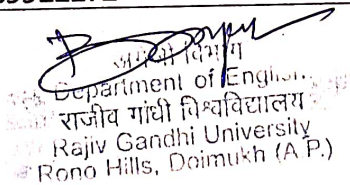 विभाग
Department of English
राजीव गांधी विश्वविद्यालय
Rajiv Gandhi University
Rono Hills, Doimukh (A.P.)